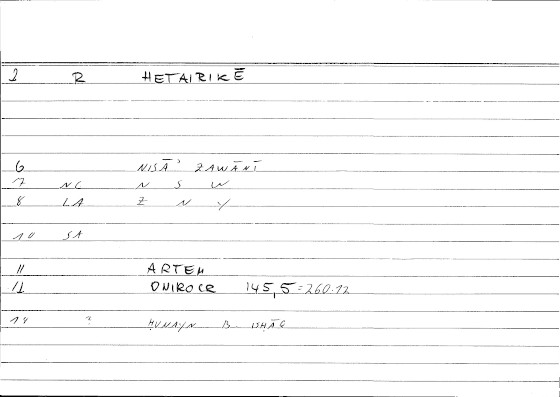 1 R HETAIRIKĒ
6 NISĀʾ ZAWĀNĪ
7 NC N S W
8 LA Z N Y
10 SA
11 ARTEM
12 ONIROCR 145,5 = 260.12
14 ? ḤUNAYN B ISḤĀQ